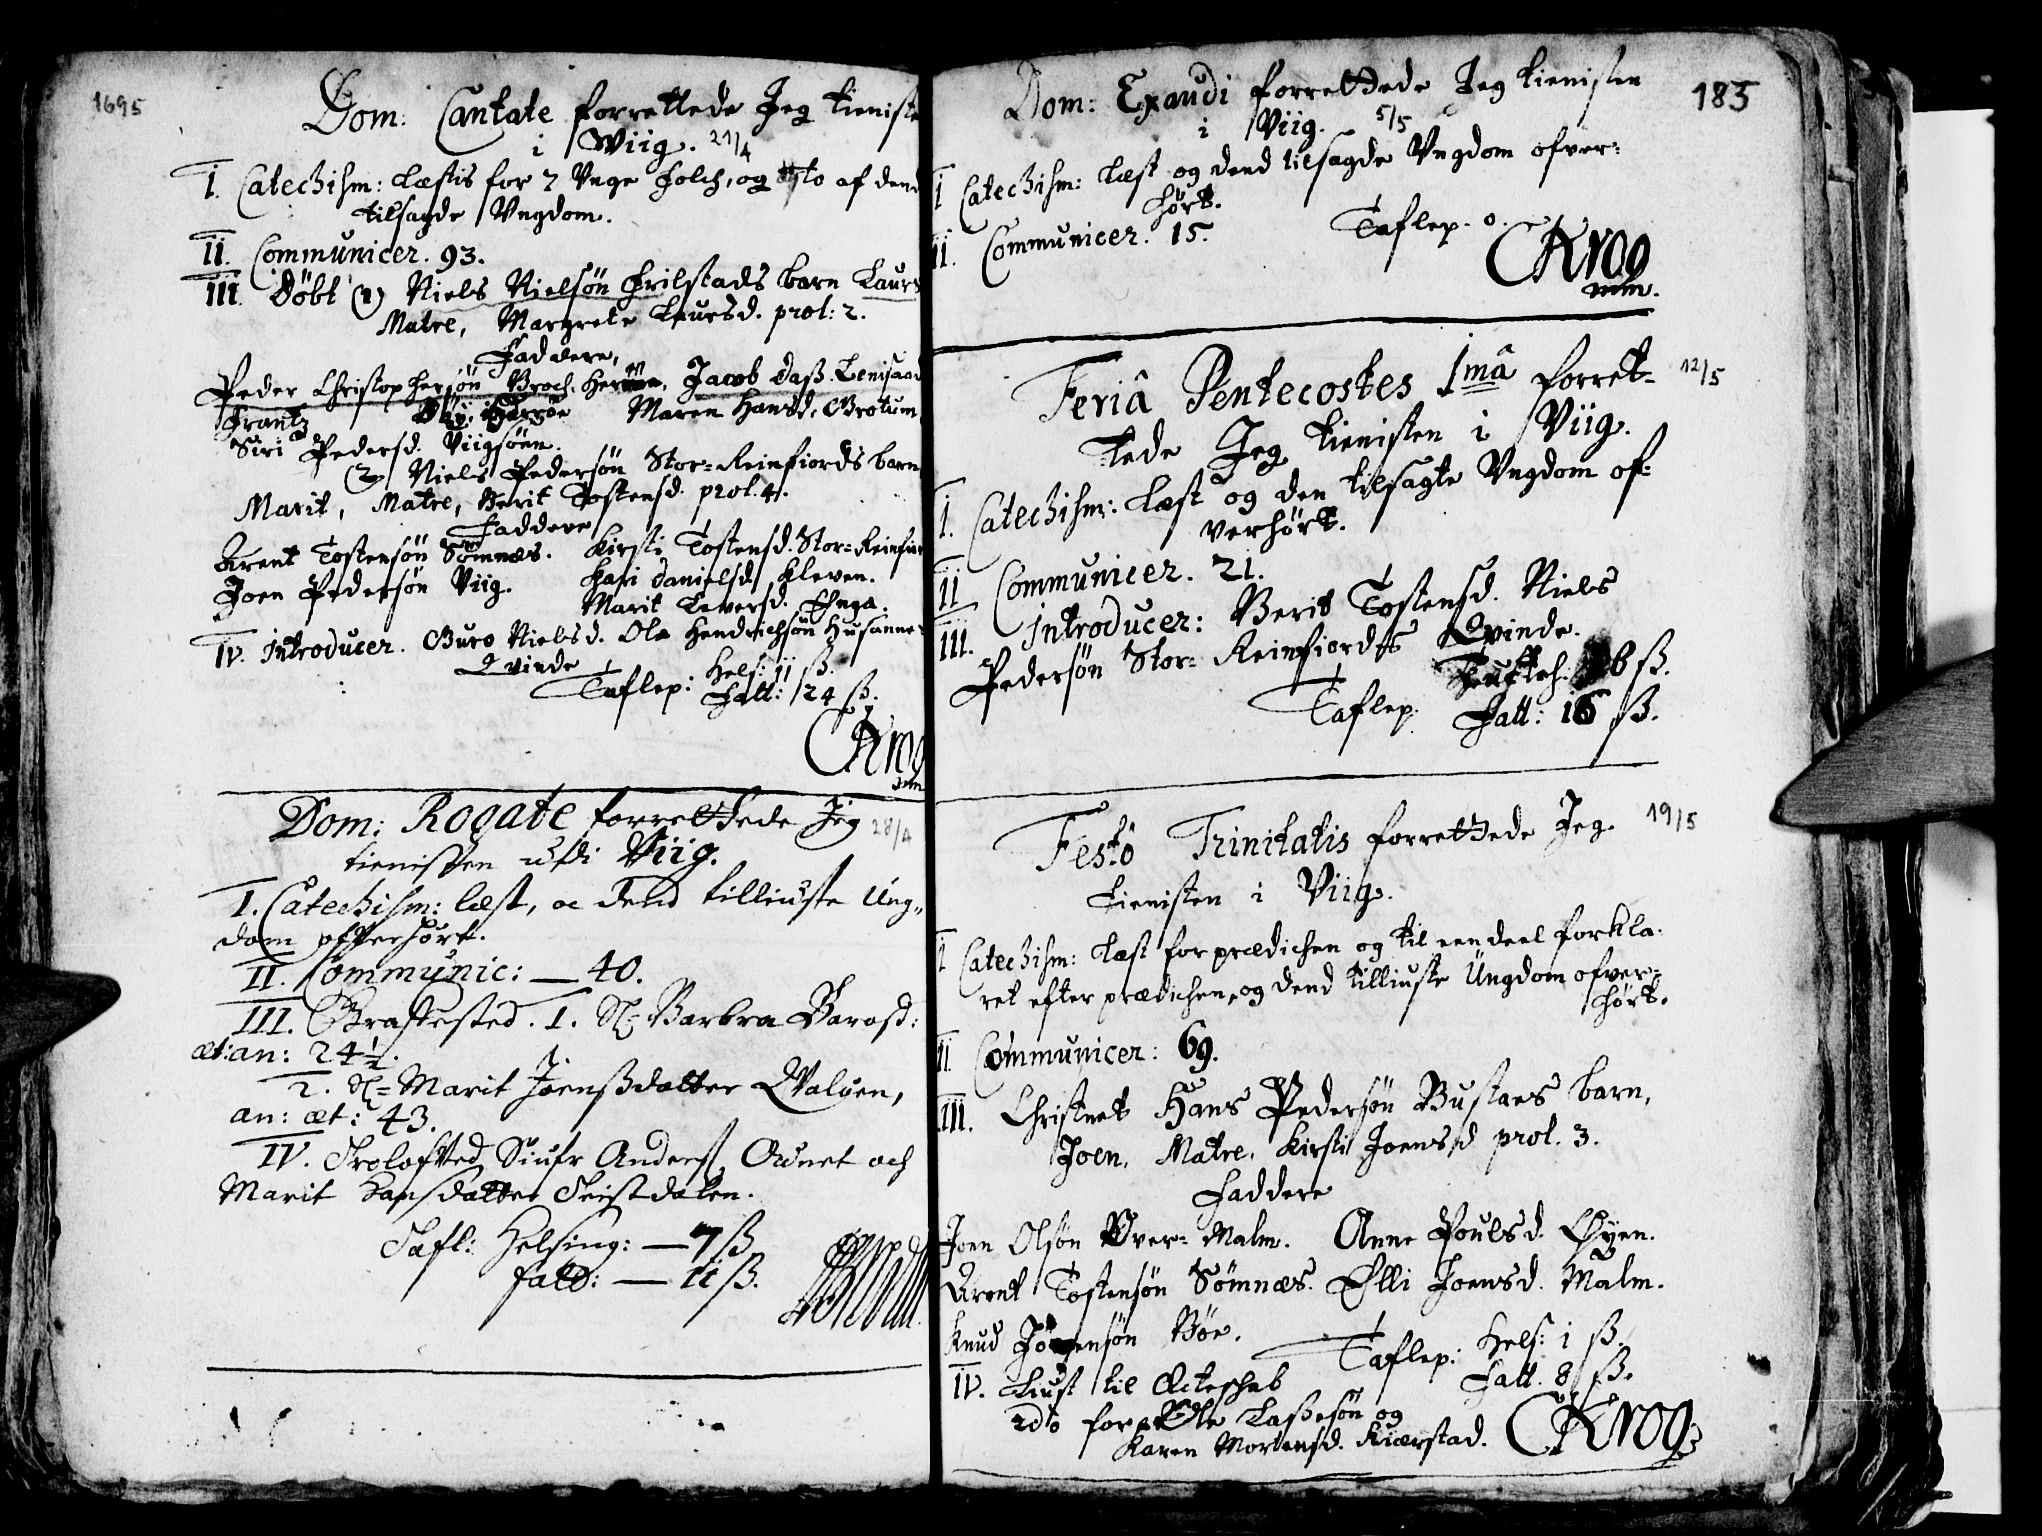 1695
Dom: Cantate forrettede Jeg tieniste
i Wiig. 21/4
I. Catechism: Læstis for 2 Unge Folch, og af dend
tilsagde Ungdom.
II. Communicer. 93.
III. Döbt (1) Niels Nielsön Hrilstads barn Laurs
Matre, Margrete Laursd. prol: 2.
Faddere,
Peder Christophersön Broch. Jacob Daß.
Frantz Maren Hansd. Grotum
Siri Pedersd. Viigsöen.
(2) Niels Pedersön Stor=Reinfiords barn
Marit, Matre, Berit Tostensd. prol. 4.
Faddere
Arent Tostensön Sömnæs. Kirsti Tostensd. Stor=Reinfior
Joen Pedersön Viig. Kari Danielsd. Kleven.
Marit Leversd. Enga.
IV. Introducer. Guro Nielsd. Ole Hendrichsön Husanne
Qvinde
Hels: 11 ß.
Taflep: Fatt: 24 ß.
CKrog
mm
Dom: Rogate forrettede Jeg 28/4
tienisten udi Viig.
I. Catechism: læst, oc dend tilliuste Ung,,
dom offverhört.
II. Communic: — 40.
III. Graffested. 1. Sl= Barbra Barosd:
æt: an: 24½.
2. Sl= Marit Joenßdatter Qvaløen,
an: æt: 43.
IV. Trolofved Siufr Anders. Ødnet och
Marit Hansdatter Tristdalen.
Tafl: Helsing: — 7 ß
fatt: — 11 ß.
183
Dom: Exaudi forrettede Jeg tienisten
i Viig. 5/5
I Catechism: Læst og dend tilsagde Ungdom ofver=
hört.
II. Communicer. 15. Taflep. 0.
CKrog
mm.
Feriâ Pentecostes 1mâ forret= 12/5
tede Jeg tienisten i Viig.
I. Catechism: Læst og den tilsagte Ungdom of=
verhört.
II Communicer. 21.
III. Introducer: Berit Tostensd. Niels
Pedersön Stor=Reinfiords Qvinde.
6 ß.
Taflep. Fatt: 16 ß.
Festo Trinitatis forrettede Jeg. 19/5
Tienisten i Viig.
I Catechism: Læst for prædichen og til een deel forkla-
ret efter prædichen, og dend tilliuste Üngdom ofver=
hört.
II. Communicer: 69.
III. Christnet Hans Pedersön Bustaes barn,
Joen. Matre. Kirsti Joensd prol. 3.
Faddere
Joen Olsön Over=Malm. Anne Poulsd. Öyen.
Arent Tostensön Sömnæs. Elli Joensd. Malm.
Knud Jörgensön Böe.
Taflep: Hels: 1 ß.
Fatt. 8 ß.
IV. Liust til Ecteschab
2do for Ole Laßesön og
Karen Mortensd. Kierstad.
CKrog